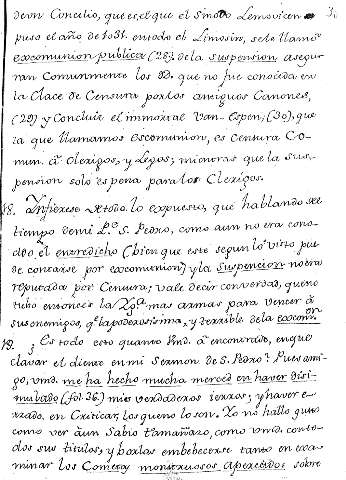 dern Concilio, que es, el que el Sínodo Lemovicen
puso el año de 1031. en todo el Limosin, se le llamó
excomunion publica (28). de la suspension asegu-
ran Comunmente los DD. que no fue conocida en
la Clace de Censura por los antiguos Canones,
(29) y Concluie el immortal Van-Espen, (30), que
la que llamamos Escomunion, es Censura Co-
mun. á Clerigos, y Legos; mientras que la Sus-
pension solo es pena para los Clerigos.
18. Infierese de todo lo expuesto, que hablando del
tiempo de mi Pe. S. Pedro, como aun no era cono-
cido el entredicho (bien que este segun lo visto pue
de contarse por excomunion) y la Suspencion no era
reputada por Censura; vale decir con verdad, que no
tubo entonces la Yga. mas armas para vencer á
sus enemigos, qe. la poderosissima, y terrible de la excomon.
19. Es todo esto quanto Vmd. á encontrado, en que
clavar el diente en mi Sermon de S. Pedro? Pues ami-
go, vmd. me ha hecho mucha merced en haver disi-
mulado (fol. 26.) mis verdaderos yerros; y haver e-
rrado, en Criticar los que no lo son. Yo no hallo gusto
como ver á un Sabio tamañazo, como vmd. con to-
dos sus titulos, y borlas embebecerse tanto en exa-
minar los Cometas monstruosos aparecidos sobre